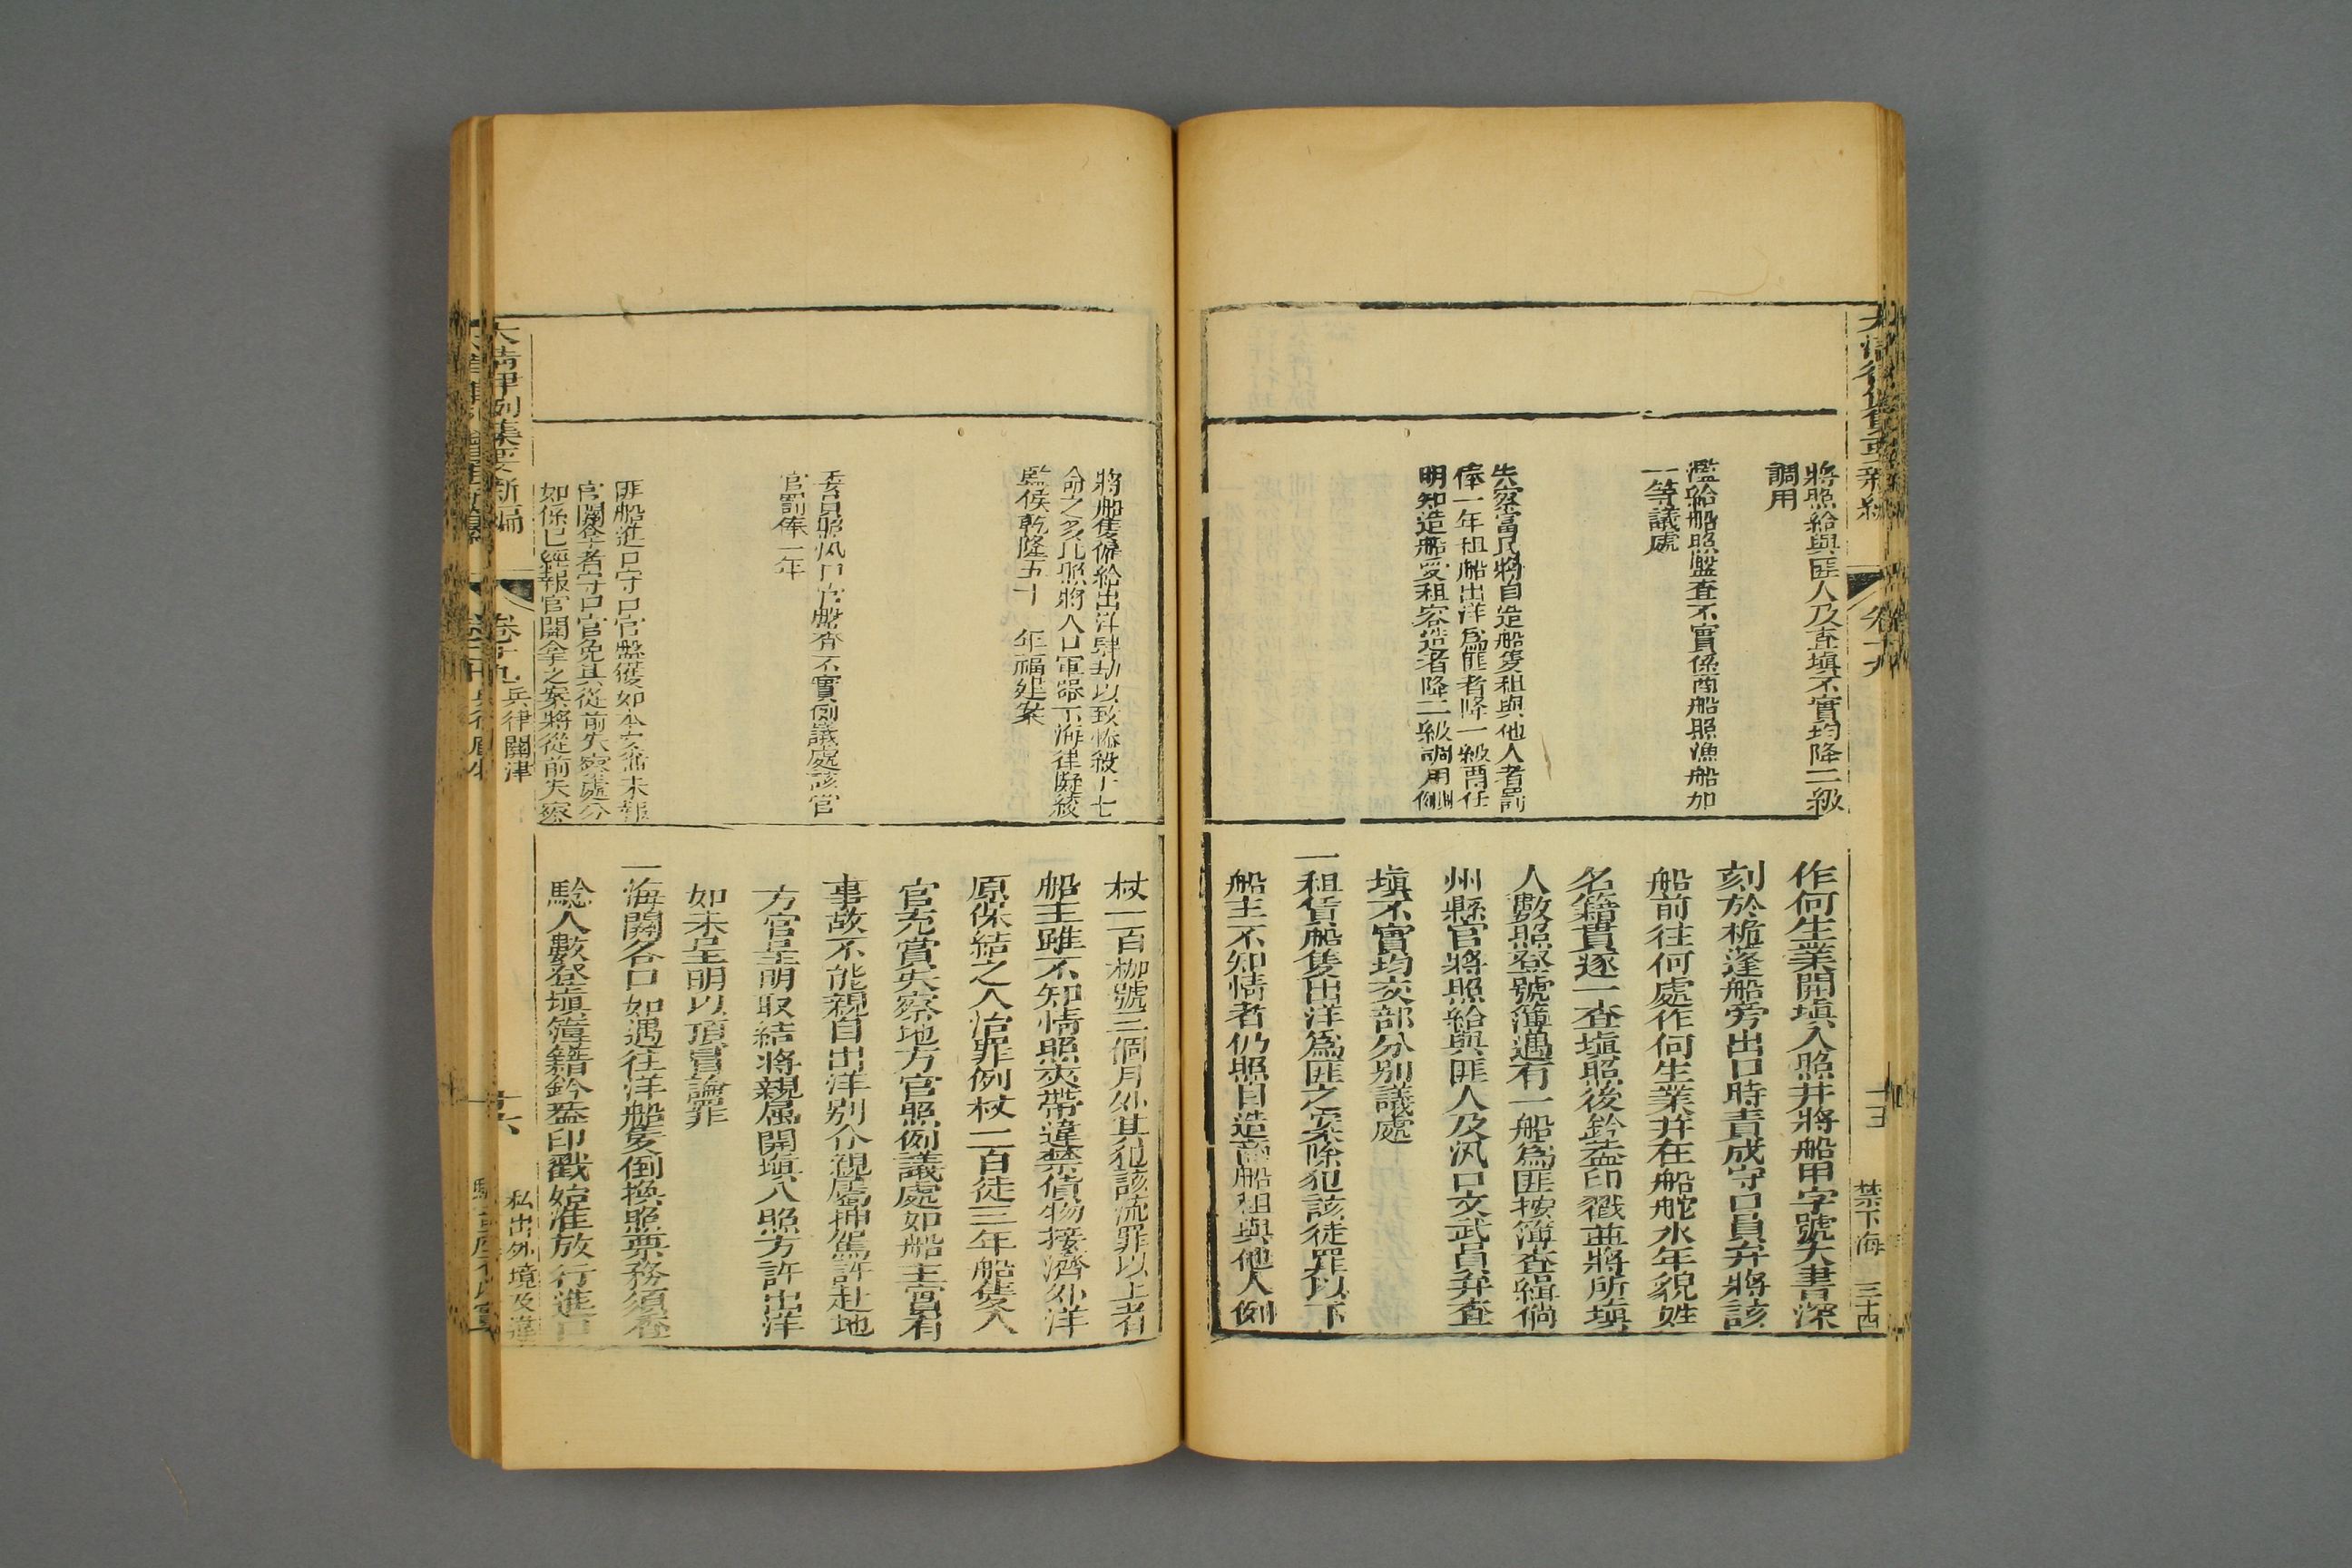 將照給與匪人及查塡不實均降二級
調用
濫給船照盤查不實係商船照漁船加
一等議處
失察富民將自造船隻租與他人者罰
俸一年租船出洋爲匪者降一級留任
明知造船受租容造者降二級調用例
作何生業開塡入照并將船甲字號大書深
刻於桅蓬船旁出口時責成守口員弁將該
船前往何處作何生業并在船舵水年貌姓
名籍貫逐一查塡照後鈐蓋印戳並將所塡
人數照登號簿遇有一船爲匪按簿查緝倘
州縣官將照給與匪人及汛口文武員弁查
塡不實均交部分別議處
一租賃船隻出洋爲匪之案除犯該徒罪以下
船主不知情者仍照自造商船租與他人例
禁下海 三十四
將船隻僱給出洋肆劫以致慘殺十七
命之多比照將人口軍器下海律擬絞
監候乾隆五十 年福建案
委員照汛口官盤查不實例議處該管
官罰俸一年
匪船進口守口官盤獲如本案尚未報
官關拿者守口官免其從前失察處分
如係已經報官關拿之案將從前失察
杖一百枷號三個月外其犯該流罪以上者
船主雖不知情照夾帶違禁貨物接濟外洋
原保結之人治罪例杖一百徒三年船隻入
官充賞失察地方官照例議處如船主實有
事故不能親自出洋別令親屬押駕許赴地
方官呈明取結將親屬開塡入照方許出洋
如未呈明以頂冒論罪
一海關各口如遇往洋船隻倒換照票務須查
騐人數登塡簿籍鈐蓋印戳始准放行進口
大清律例集要新編 卷十九 兵律關津 私出外境及違